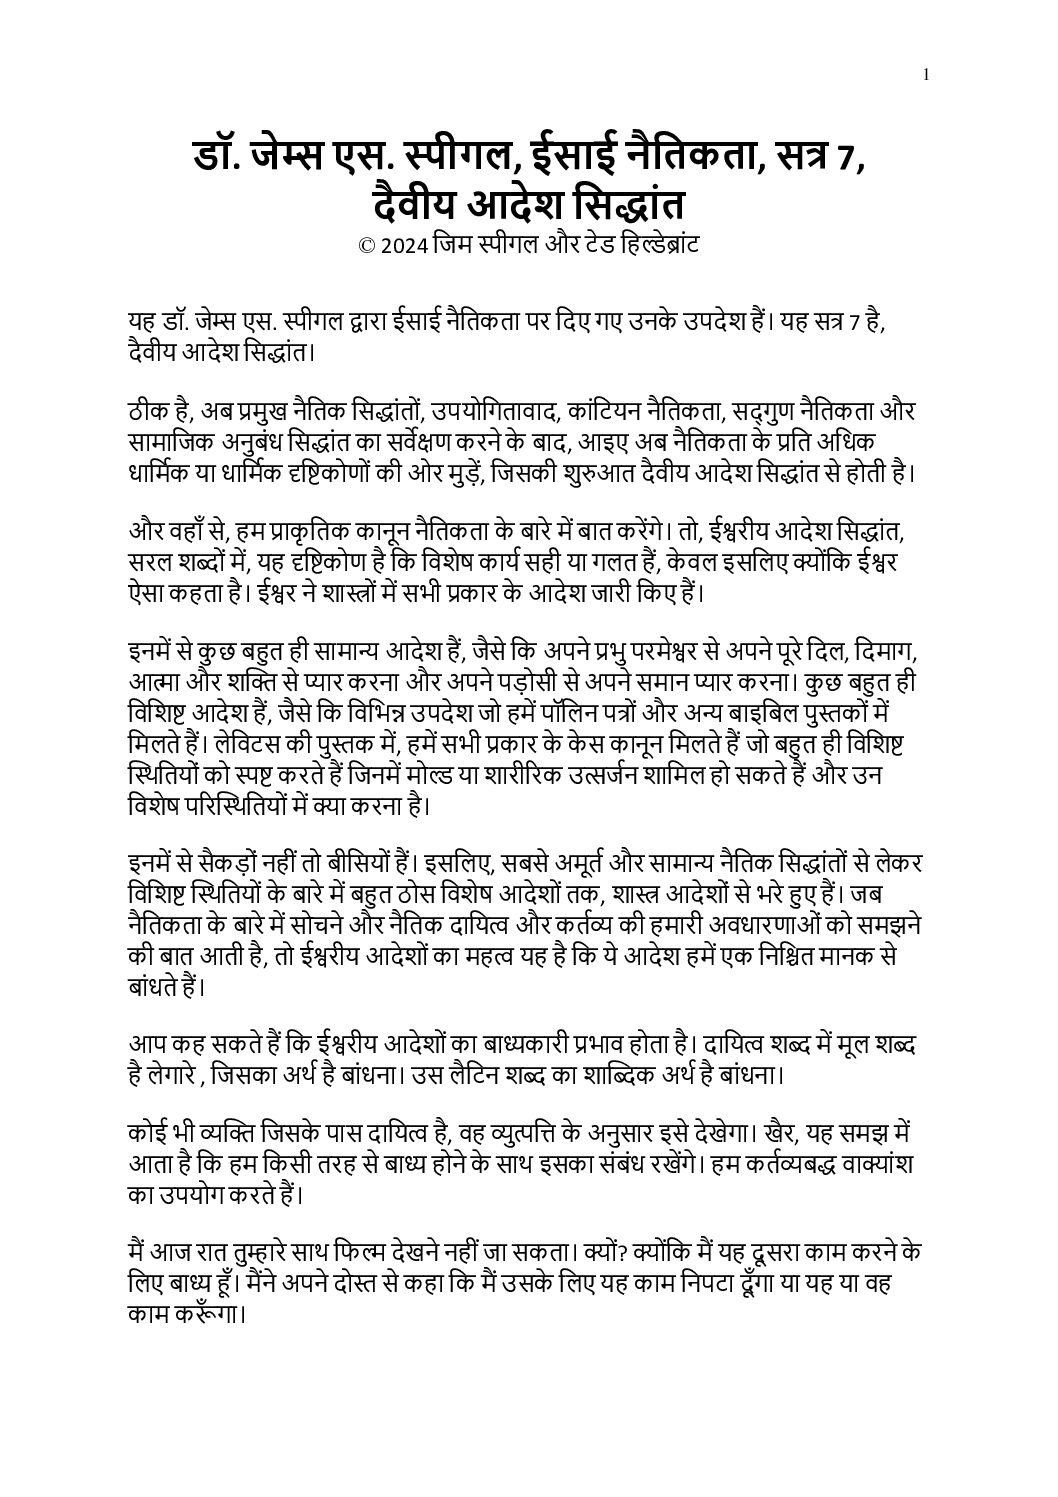 1
डॉ. जेम्स एस. स्पीगल, ईसाई नैतिकता, सत्र 7,
दैवीय आदेश सिद्धांत
© 2024 जिम स्पीगल और टेड हिल्डेब्रांट
यह डॉ. जेम्स एस. स्पीगल द्वारा ईसाई नैतिकता पर दिए गए उनके उपदेश हैं। यह सत्र 7 है,
दैवीय आदेश सिद्धांत।
ठीक है, अब प्रमुख नैतिक सिद्धांतों, उपयोगितावाद, कांटियन नैतिकता, सद्गुण नैतिकता और
सामाजिक अनुबंध सिद्धांत का सर्वेक्षण करने के बाद, आइए अब नैतिकता के प्रति अधिक
धार्मिक या धार्मिक दृष्टिकोणों की ओर मुड़ें, जिसकी शुरुआत दैवीय आदेश सिद्धांत से होती है।
और वहाँ से, हम प्राकृतिक कानून नैतिकता के बारे में बात करेंगे। तो, ईश्वरीय आदेश सिद्धांत,
सरल शब्दों में, यह दृष्टिकोण है कि विशेष कार्य सही या गलत हैं, केवल इसलिए क्योंकि ईश्वर
ऐसा कहता है। ईश्वर ने शास्त्रों में सभी प्रकार के आदेश जारी किए हैं।
इनमें से कुछ बहुत ही सामान्य आदेश हैं, जैसे कि अपने प्रभु परमेश्वर से अपने पूरे दिल, दिमाग,
आत्मा और शक्ति से प्यार करना और अपने पड़ोसी से अपने समान प्यार करना। कुछ बहुत ही
विशिष्ट आदेश हैं, जैसे कि विभिन्न उपदेश जो हमें पॉलिन पत्रों और अन्य बाइबिल पुस्तकों में
मिलते हैं। लेविटस की पुस्तक में, हमें सभी प्रकार के केस कानून मिलते हैं जो बहुत ही विशिष्ट
स्थितियों को स्पष्ट करते हैं जिनमें मोल्ड या शारीरिक उत्सर्जन शामिल हो सकते हैं और उन
विशेष परिस्थितियों में क्या करना है।
इनमें से सैकड़ों नहीं तो बीसियों हैं। इसलिए, सबसे अमूर्त और सामान्य नैतिक सिद्धांतों से लेकर
विशिष्ट स्थितियों के बारे में बहुत ठोस विशेष आदेशों तक, शास्त्र आदेशों से भरे हुए हैं। जब
नैतिकता के बारे में सोचने और नैतिक दायित्व और कर्तव्य की हमारी अवधारणाओं को समझने
की बात आती है, तो ईश्वरीय आदेशों का महत्व यह है कि ये आदेश हमें एक निश्चित मानक से
बांधते हैं।
आप कह सकते हैं कि ईश्वरीय आदेशों का बाध्यकारी प्रभाव होता है। दायित्व शब्द में मूल शब्द
है लेगारे , जिसका अर्थ है बांधना। उस लैटिन शब्द का शाब्दिक अर्थ है बांधना।
कोई भी व्यक्ति जिसके पास दायित्व है, वह व्युत्पत्ति के अनुसार इसे देखेगा। खैर, यह समझ में
आता है कि हम किसी तरह से बाध्य होने के साथ इसका संबंध रखेंगे। हम कर्तव्यबद्ध वाक्यांश
का उपयोग करते हैं।
मैं आज रात तुम्हारे साथ फिल्म देखने नहीं जा सकता। क्यों? क्योंकि मैं यह दूसरा काम करने के
लिए बाध्य हूँ। मैंने अपने दोस्त से कहा कि मैं उसके लिए यह काम निपटा दूँगा या यह या वह
काम करूँगा।